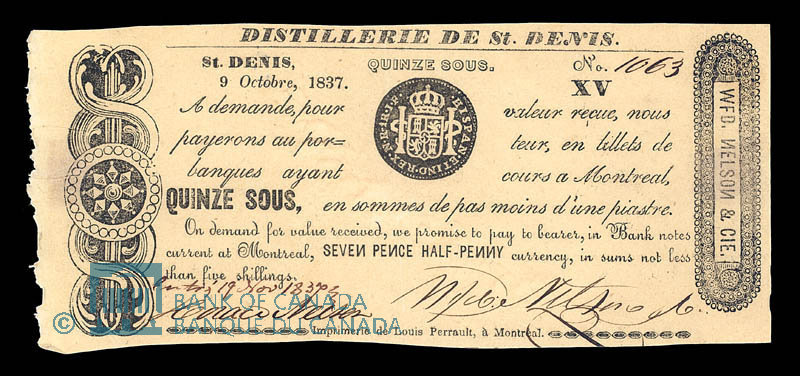 DISTILLERIE DE St. DENIS.
St. DENIS, QUINZE SOUS. No. 1063
9 Octobre, 1837. XV
A demande, pour valeur reçue, nous
payerons au por= teur, en billets de
banques ayant cours a Montreal,
QUINZE SOUS, en sommes de pas moins d'une piastre.
On demand for value received, we promise to pay to bearer, in Bank notes
current at Montreal, SEVEN PENCE HALF-PENNY currency, in sums not less
than five shillings.
19 Nov 1837
Wfd. Nelson & C.
Imprimerie de Louis Perrault, à Montréal.
WFD. NELSON & CIE.
HISPAN.ET IND.REX.
© BANK OF CANADA
BANQUE DU CANADA